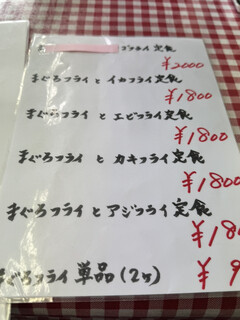 フライ定食
¥2000
まぐろフライとイカフライ定食
¥1800
まぐろフライとエビフライ定食
¥1800
まぐろフライとカキフライ定食
¥1800
まぐろフライとアジフライ定食
¥180
まぐろフライ単品(2ケ)
¥9